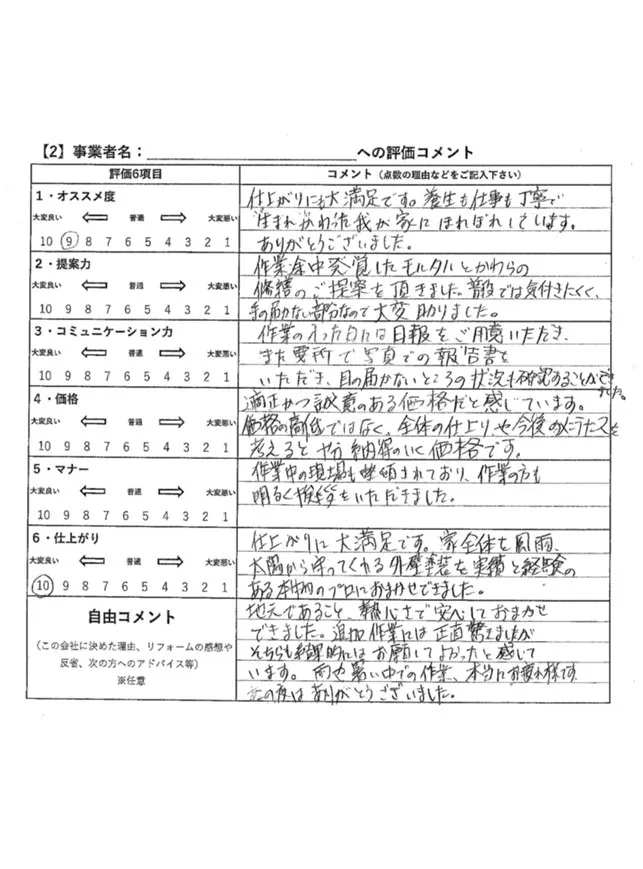 【2】事業者名：____________________への評価コメント
評価6項目
コメント（点数の理由などをご記入下さい）
1・オススメ度
大変良い ⇐ 普通 ⇒ 大変悪い
10 9 8 7 6 5 4 3 2 1
仕上がりにも大満足です。養生も仕事も丁寧で
生まれかわった我が家にほれぼれしています。
ありがとうございました。
2・提案力
大変良い ⇐ 普通 ⇒ 大変悪い
10 9 8 7 6 5 4 3 2 1
作業途中発覚したモルタルとかわらの
修繕のご提案を頂きました。普段では気付きにくく、
手の届かない部分なので大変助りました。
3・コミュニケーション力
大変良い ⇐ 普通 ⇒ 大変悪い
10 9 8 7 6 5 4 3 2 1
作業のあった日には日報をご用意いただき、
また要所で写真での報告書を
いただき、目の届かないところの状況も確認することができました。
4・価格
大変良い ⇐ 普通 ⇒ 大変悪い
10 9 8 7 6 5 4 3 2 1
適正かつ誠意のある価格だと感じています。
価格の高低ではなく、全体の仕上りや今後のメンテナンスを
考えると十分納得のいく価格です。
5・マナー
大変良い ⇐ 普通 ⇒ 大変悪い
10 9 8 7 6 5 4 3 2 1
作業中の現場も整頓されており、作業の方も
明るく挨拶をいただきました。
6・仕上がり
大変良い ⇐ 普通 ⇒ 大変悪い
10 9 8 7 6 5 4 3 2 1
仕上がりに大満足です。家全体を風雨、
太陽から守ってくれる外壁塗装を実績と経験の
ある本物のプロにおまかせできました。
自由コメント
（この会社に決めた理由、リフォームの感想や
反省、次の方へのアドバイス等）
※任意
地元であること、熱心さで安心しておまかせ
できました。追加作業には正直驚きましたが
そちらも結果的にはお願いしてよかったと感じて
います。雨や暑い中での作業、本当にお疲れ様です
この度はありがとうございました。